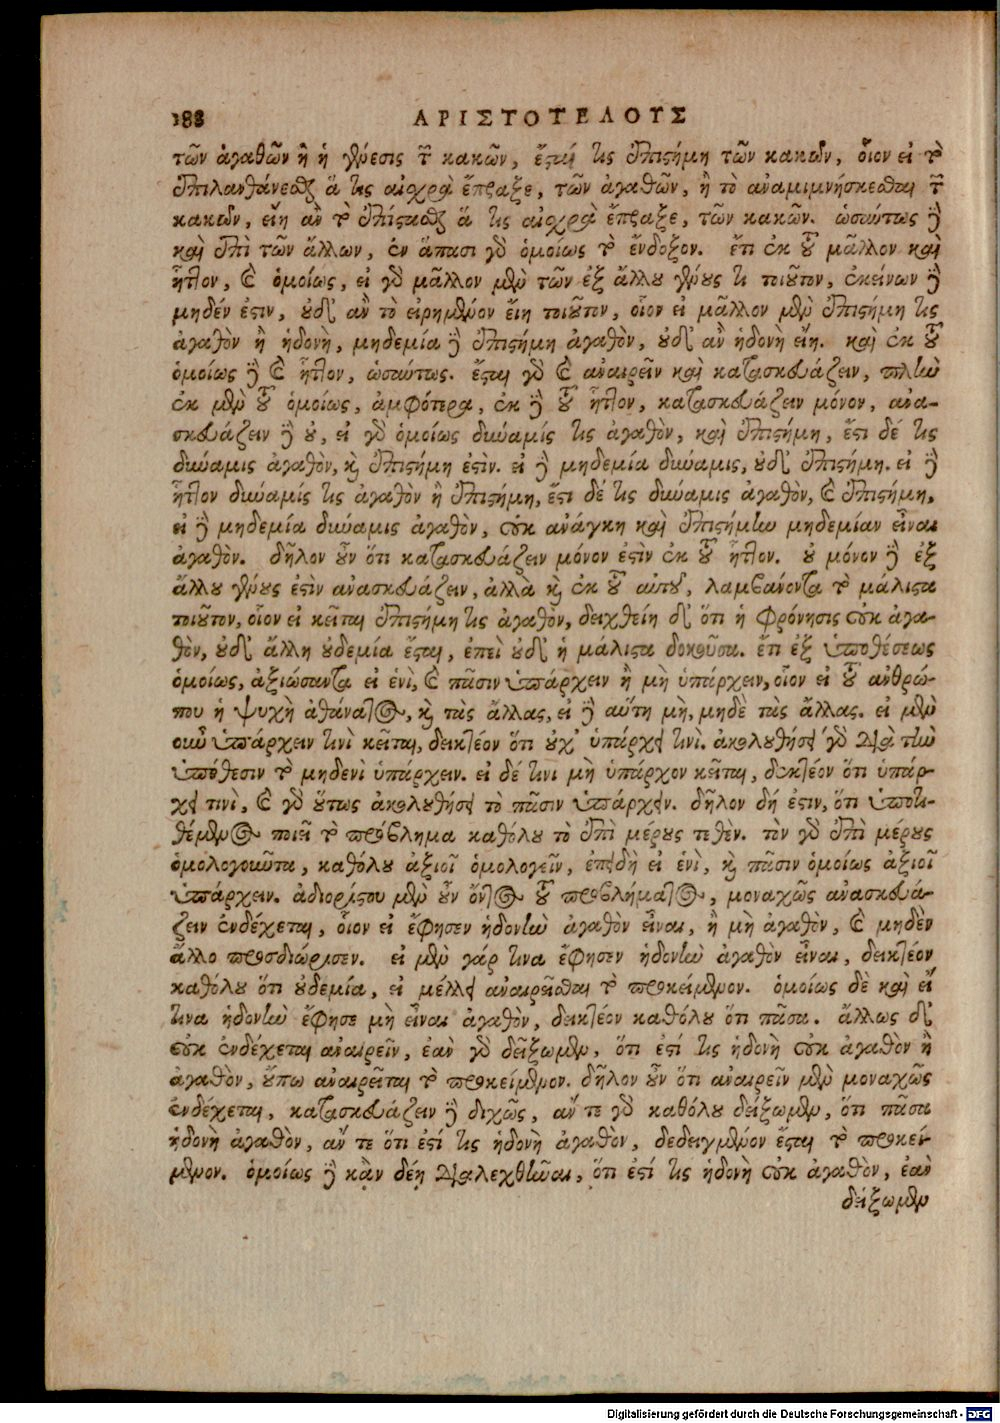 188 ΑΡΙΣΤΟΤΕΛΟΥΣ
τῶν ἀγαθῶν ἢ ἡ γένεσις τῶν κακῶν, ἔσται τις ἐπιστήμη τῶν κακῶν, οἷον εἰ τὸ
ἐπιλανθάνεσθαι ἅ τις αἰσχρὰ ἔπραξε, τῶν ἀγαθῶν, ἢ τὸ ἀναμιμνήσκεσθαι τῶν
κακῶν, εἴη ἂν τὸ ἐπίστασθαι ἅ τις αἰσχρὰ ἔπραξε, τῶν κακῶν. ὡσαύτως δὲ
καὶ ἐπὶ τῶν ἄλλων, ἐν ἅπασι γὰρ ὁμοίως τὸ ἔνδοξον. ἔτι ἐκ τοῦ μᾶλλον καὶ
ἧττον, καὶ ὁμοίως, εἰ γὰρ μᾶλλον μὲν τῶν ἐξ ἄλλου γένους τι τοιοῦτον, ἐκείνων δὲ
μηδέν ἐστιν, οὐδ' ἂν τὸ εἰρημένον εἴη τοιοῦτον, οἷον εἰ μᾶλλον μὲν ἐπιστήμη τις
ἀγαθὸν ἢ ἡδονὴ, μηδεμία δὲ ἐπιστήμη ἀγαθὸν, οὐδ' ἂν ἡδονὴ εἴη. καὶ ἐκ τοῦ
ὁμοίως δὲ καὶ ἧττον, ὡσαύτως. ἔσται γὰρ καὶ ἀναιρεῖν καὶ κατασκευάζειν, πλὴν
ἐκ μὲν τοῦ ὁμοίως, ἀμφότερα, ἐκ δὲ τοῦ ἧττον, κατασκευάζειν μόνον, ἀνα-
σκευάζειν δὲ οὐ, εἰ γὰρ ὁμοίως δύναμίς τις ἀγαθὸν, καὶ ἐπιστήμη, ἔστι δέ τις
δύναμις ἀγαθὸν, καὶ ἐπιστήμη ἐστίν. εἰ δὲ μηδεμία δύναμις, οὐδ' ἐπιστήμη. εἰ δὲ
ἧττον δύναμίς τις ἀγαθὸν ἢ ἐπιστήμη, ἔστι δέ τις δύναμις ἀγαθὸν, καὶ ἐπιστήμη,
εἰ δὲ μηδεμία δύναμις ἀγαθὸν, οὐκ ἀνάγκη καὶ ἐπιστήμην μηδεμίαν εἶναι
ἀγαθὸν. δῆλον οὖν ὅτι κατασκευάζειν μόνον ἐστὶν ἐκ τοῦ ἧττον. οὐ μόνον δὲ ἐξ
ἄλλου γένους ἐστὶν ἀνασκευάζειν, ἀλλὰ καὶ ἐκ τοῦ αὐτοῦ, λαμβάνοντα τὸ μάλιστα
τοιοῦτον, οἷον εἰ κεῖται ἐπιστήμη τις ἀγαθὸν, δειχθείη δ' ὅτι ἡ φρόνησις οὐκ ἀγα-
θὸν, οὐδ' ἄλλη οὐδεμία ἔσται, ἐπεὶ οὐδ' ἡ μάλιστα δοκοῦσα. ἔτι ἐξ ὑποθέσεως
ὁμοίως, ἀξιώσαντα εἰ ἑνὶ, καὶ πᾶσιν ὑπάρχειν ἢ μὴ ὑπάρχειν, οἷον εἰ τοῦ ἀνθρώ-
που ἡ ψυχὴ ἀθάνατος, καὶ τὰς ἄλλας, εἰ δὲ αὕτη μὴ, μηδὲ τὰς ἄλλας. εἰ μὲν
οὖν ὑπάρχειν τινὶ κεῖται, δεικτέον ὅτι οὐχ' ὑπάρχει τινί. ἀκολουθήσει γὰρ διὰ τὴν
ὑπόθεσιν τὸ μηδενὶ ὑπάρχειν. εἰ δέ τινι μὴ ὑπάρχον κεῖται, δεικτέον ὅτι ὑπάρ-
χει τινὶ, καὶ γὰρ οὕτως ἀκολουθήσει τὸ πᾶσιν ὑπάρχειν. δῆλον δή ἐστιν, ὅτι ὑποτι-
θέμενος ποιεῖ τὸ πρόβλημα καθόλου τὸ ἐπὶ μέρους τεθέν. τὸν γὰρ ἐπὶ μέρους
ὁμολογοῦντα, καθόλου ἀξιοῖ ὁμολογεῖν, ἐπειδὴ εἰ ἑνὶ, καὶ πᾶσιν ὁμοίως ἀξιοῖ
ὑπάρχειν. ἀδιορίστου μὲν οὖν ὄντος τοῦ προβλήματος, μοναχῶς ἀνασκευά-
ζειν ἐνδέχεται, οἷον εἰ ἔφησεν ἡδονὴν ἀγαθὸν εἶναι, ἢ μὴ ἀγαθὸν, καὶ μηδὲν
ἄλλο προσδιώρισεν. εἰ μὲν γάρ τινα ἔφησεν ἡδονὴν ἀγαθὸν εἶναι, δεικτέον
καθόλου ὅτι οὐδεμία, εἰ μέλλει ἀναιρεῖσθαι τὸ προκείμενον. ὁμοίως δὲ καὶ εἴ
τινα ἡδονὴν ἔφησε μὴ εἶναι ἀγαθὸν, δεικτέον καθόλου ὅτι πᾶσα. ἄλλως δ'
οὐκ ἐνδέχεται ἀναιρεῖν, ἐὰν γὰρ δείξωμεν, ὅτι ἐστί τις ἡδονὴ οὐκ ἀγαθὸν ἢ
ἀγαθὸν, οὔπω ἀναιρεῖται τὸ προκείμενον. δῆλον οὖν ὅτι ἀναιρεῖν μὲν μοναχῶς
ἐνδέχεται, κατασκευάζειν δὲ διχῶς, ἄν τε γὰρ καθόλου δείξωμεν, ὅτι πᾶσα
ἡδονὴ ἀγαθὸν, ἄν τε ὅτι ἐστί τις ἡδονὴ ἀγαθὸν, δεδειγμένον ἔσται τὸ προκεί-
μενον. ὁμοίως δὲ κἂν δέῃ διαλεχθῆναι, ὅτι ἐστί τις ἡδονὴ οὐκ ἀγαθὸν, ἐὰν
δείξωμεν
Digitalisierung gefördert durch die Deutsche Forschungsgemeinschaft - DFG